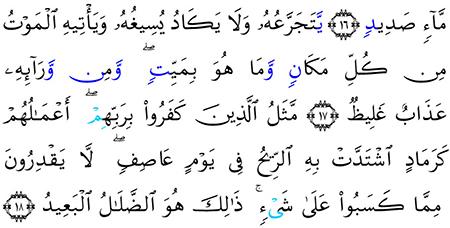 مَّآءٖ صَدِيدٖ ١٦ يَتَجَرَّعُهُۥ وَلَا يَكَادُ يُسِيغُهُۥ وَيَأۡتِيهِ ٱلۡمَوۡتُ
مِن كُلِّ مَكَانٖ وَمَا هُوَ بِمَيِّتٖۖ وَمِن وَرَآئِهِۦ
عَذَابٌ غَلِيظٞ ١٧ مَّثَلُ ٱلَّذِينَ كَفَرُواْ بِرَبِّهِمۡۖ أَعۡمَٰلُهُمۡ
كَرَمَادٍ ٱشۡتَدَّتۡ بِهِ ٱلرِّيحُ فِي يَوۡمٍ عَاصِفٖۖ لَّا يَقۡدِرُونَ
مِمَّا كَسَبُواْ عَلَىٰ شَيۡءٖۚ ذَٰلِكَ هُوَ ٱلضَّلَٰلُ ٱلۡبَعِيدُ ١٨